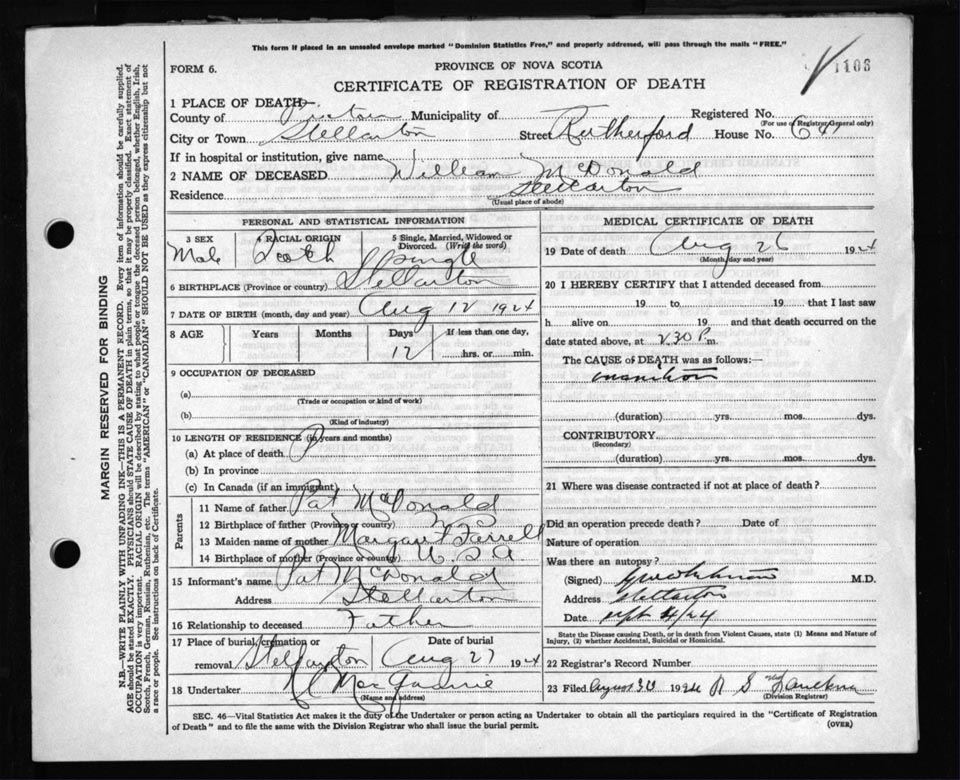 This form if placed in an unsealed envelope marked "Dominion Statistics Free," and properly addressed, will pass through the mails "FREE."
FORM 6.
PROVINCE OF NOVA SCOTIA
1103
CERTIFICATE OF REGISTRATION OF DEATH
1 PLACE OF DEATH—
County of Pictou Municipality of Registered No.
(For use of Registrar General only)
City or Town Stellarton Street Rutherford House No.
If in hospital or institution, give name
2 NAME OF DECEASED William McDonald
Residence Stellarton
(Usual place of abode)
PERSONAL AND STATISTICAL INFORMATION
3 SEX Male
4 RACIAL ORIGIN Scotch
5 Single, Married, Widowed or Divorced. (Write the word) Single
6 BIRTHPLACE (Province or country) Stellarton
7 DATE OF BIRTH (month, day and year) Aug 12 1924
8 AGE Years Months Days 12 If less than one day, hrs. or min.
9 OCCUPATION OF DECEASED
(a)
(Trade or occupation or kind of work)
(b)
(Kind of industry)
10 LENGTH OF RESIDENCE (in years and months)
(a) At place of death
(b) In province
(c) In Canada (if an immigrant)
Parents
11 Name of father Pat McDonald
12 Birthplace of father (Province or country) N S
13 Maiden name of mother Margaret Farrell
14 Birthplace of mother (Province or country) U.S.A
15 Informant's name Pat McDonald
Address Stellarton
16 Relationship to deceased Father
17 Place of burial, cremation or removal Stellarton Date of burial Aug 27 1924
18 Undertaker
(Name and address)
MEDICAL CERTIFICATE OF DEATH
19 Date of death Aug 26 1924
(Month, day and year)
20 I HEREBY CERTIFY that I attended deceased from
19 to 19 that I last saw
h alive on 19 and that death occurred on the
date stated above, at 2 30 P m.
The CAUSE of DEATH was as follows:—
inanition
(duration) yrs. mos. dys.
CONTRIBUTORY
(Secondary)
(duration) yrs. mos. dys.
21 Where was disease contracted if not at place of death?
Did an operation precede death? Date of
Nature of operation
Was there an autopsy?
(Signed) M.D.
Address Stellarton
Date Sept 4/24
State the Disease causing Death, or in death from Violent Causes, state (1) Means and Nature of Injury, (2) whether Accidental, Suicidal or Homicidal.
22 Registrar's Record Number
23 Filed August 30 1924 R S
(Division Registrar)
SEC. 46—Vital Statistics Act makes it the duty of the Undertaker or person acting as Undertaker to obtain all the particulars required in the "Certificate of Registration
of Death" and to file the same with the Division Registrar who shall issue the burial permit.
(OVER)
MARGIN RESERVED FOR BINDING
N.B.—WRITE PLAINLY WITH UNFADING INK—THIS IS A PERMANENT RECORD. Every item of information should be carefully supplied.
AGE should be stated EXACTLY. PHYSICIANS should STATE CAUSE OF DEATH in plain terms, so that it may be properly classified. Exact statement of
OCCUPATION is very important. RACIAL ORIGIN will be described by stating to what people or tongue the deceased person belonged, whether English, Irish,
Scotch, French, German, Russian, Ruthenian, etc. The terms "AMERICAN" or "CANADIAN" SHOULD NOT BE USED as they express citizenship but not
a race or people. See instructions on back of Certificate.